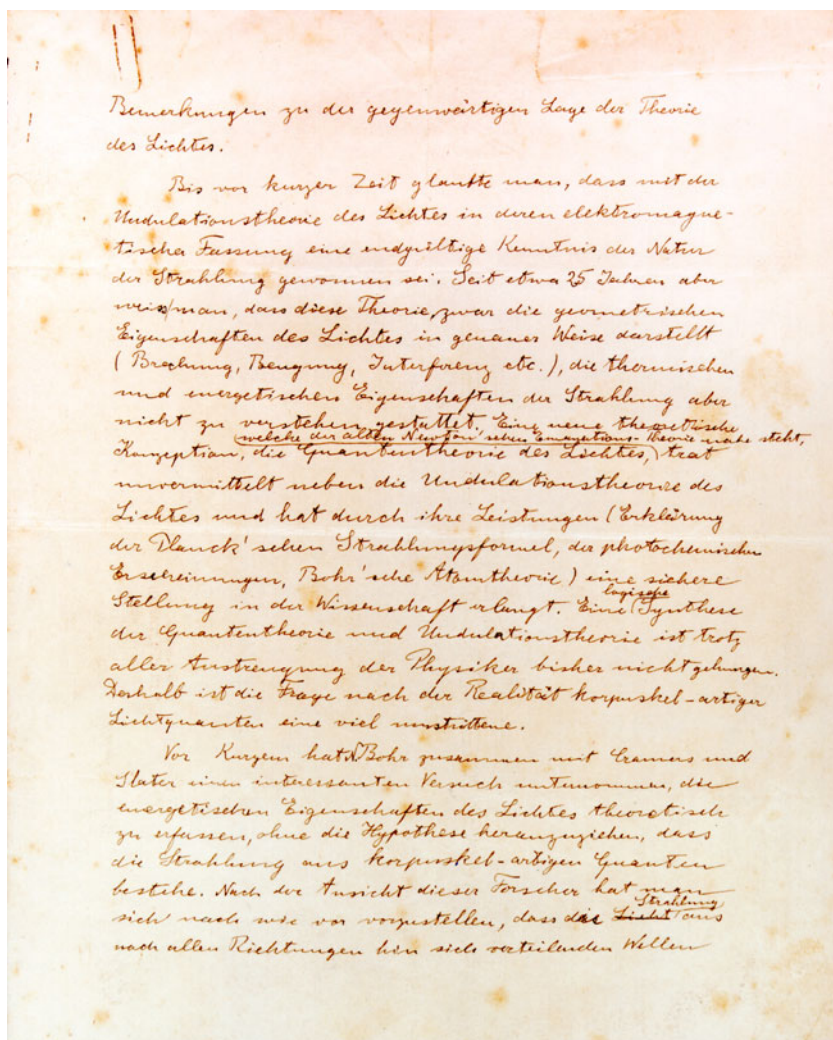 Bemerkungen zu der gegenwärtigen Lage der Theorie
des Lichtes.
Bis vor kurzer Zeit glaubte man, dass mit der
Undulationstheorie des Lichtes in deren elektromagne-
tischer Fassung eine endgültige Kenntnis der Natur
der Strahlung gewonnen sei. Seit etwa 25 Jahren aber
weiss man, dass diese Theorie, zwar die geometrischen
Eigenschaften des Lichtes in genauer Weise darstellt
(Brechung, Beugung, Interferenz etc.), die thermischen
und energetischen Eigenschaften der Strahlung aber
nicht zu verstehen gestattet. Eine neue theoretische
welche der alten Newton'schen Emanations-Theorie nahe steht,
Konzeption, die Quantentheorie des Lichtes, trat
unvermittelt neben die Undulationstheorie des
Lichtes und hat durch ihre Leistungen (Erklärung
der Planck'schen Strahlungsformel, der photochemischen
Erscheinungen, Bohr'sche Atomtheorie) eine sichere
logische
Stellung in der Wissenschaft erlangt. Eine Synthese
der Quantentheorie und Undulationstheorie ist trotz
aller Anstrengung der Physiker bisher nicht gelungen.
Deshalb ist die Frage nach der Realität korpuskel-artiger
Lichtquanten eine viel umstrittene.
Vor Kurzem hat N Bohr zusammen mit Cramers und
Slater einen interessanten Versuch unternommen, die
energetischen Eigenschaften des Lichtes theoretisch
zu erfassen, ohne die Hypothese heranzuziehen, dass
die Strahlung aus korpuskel-artigen Quanten
bestehe. Nach der Ansicht dieser Forscher hat man
Strahlung
sich nach wie vor vorzustellen, dass die Licht aus
nach allen Richtungen hin sich verteilenden Wellen